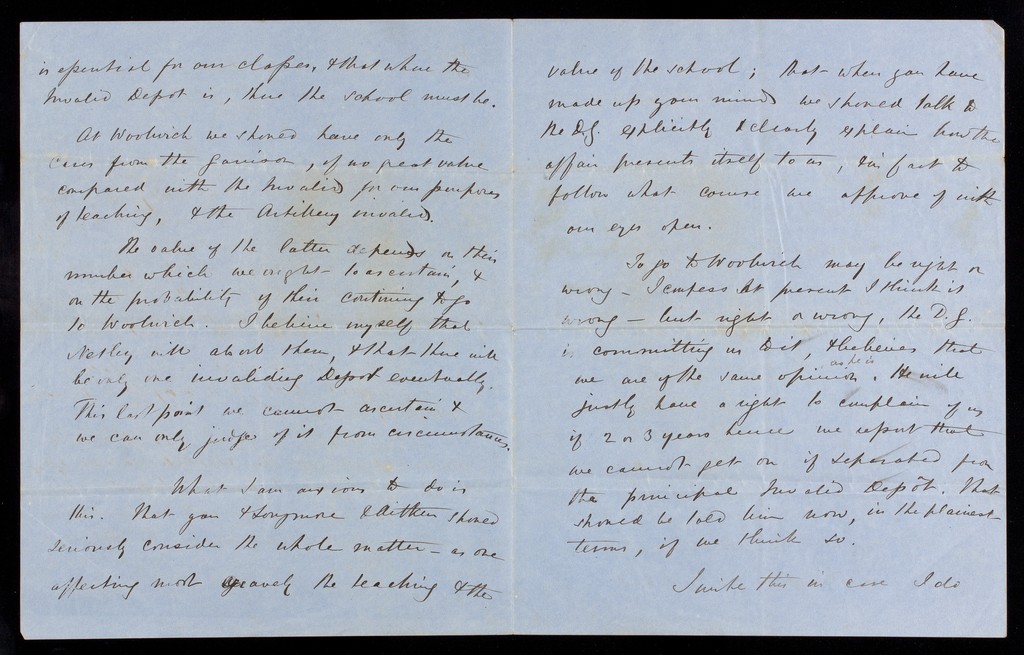 is essential for our classes, & that where the
Invalid Depot is, there the school must be.
At Woolwich we should have only the
cases from the garrison, of no great value
compared with the Invalids for our purposes
of teaching, & the Artillery invalids.
The value of the latter depends on their
number which we ought to ascertain, &
on the probability of their continuing to go
to Woolwich. I believe myself that
Netley will absorb them, & that there will
be only one invaliding Depot eventually.
This last point we cannot ascertain &
we can only judge of it from circumstances.
What I am anxious to do is
this. That you & Longmore & Aitken should
seriously consider the whole matter – as one
affecting most gravely the teaching & the
value of the school; that when you have
made up your minds we should talk to
the D.G. explicitly & clearly explain how the
affair presents itself to us, & in fact to
follow what course we approve of with
our eyes open.
To go to Woolwich may be right or
wrong – I confess at present I think it
wrong – but right or wrong, the D.G.
is committing us to it, & believes that
we are of the same opinion as he is. He will
justly have a right to complain of us
if 2 or 3 years hence we report that
we cannot get on if separated from
the principal Invalid Depôt. That
should be told him now, in the plainest
terms, if we think so.
I write this in case I do